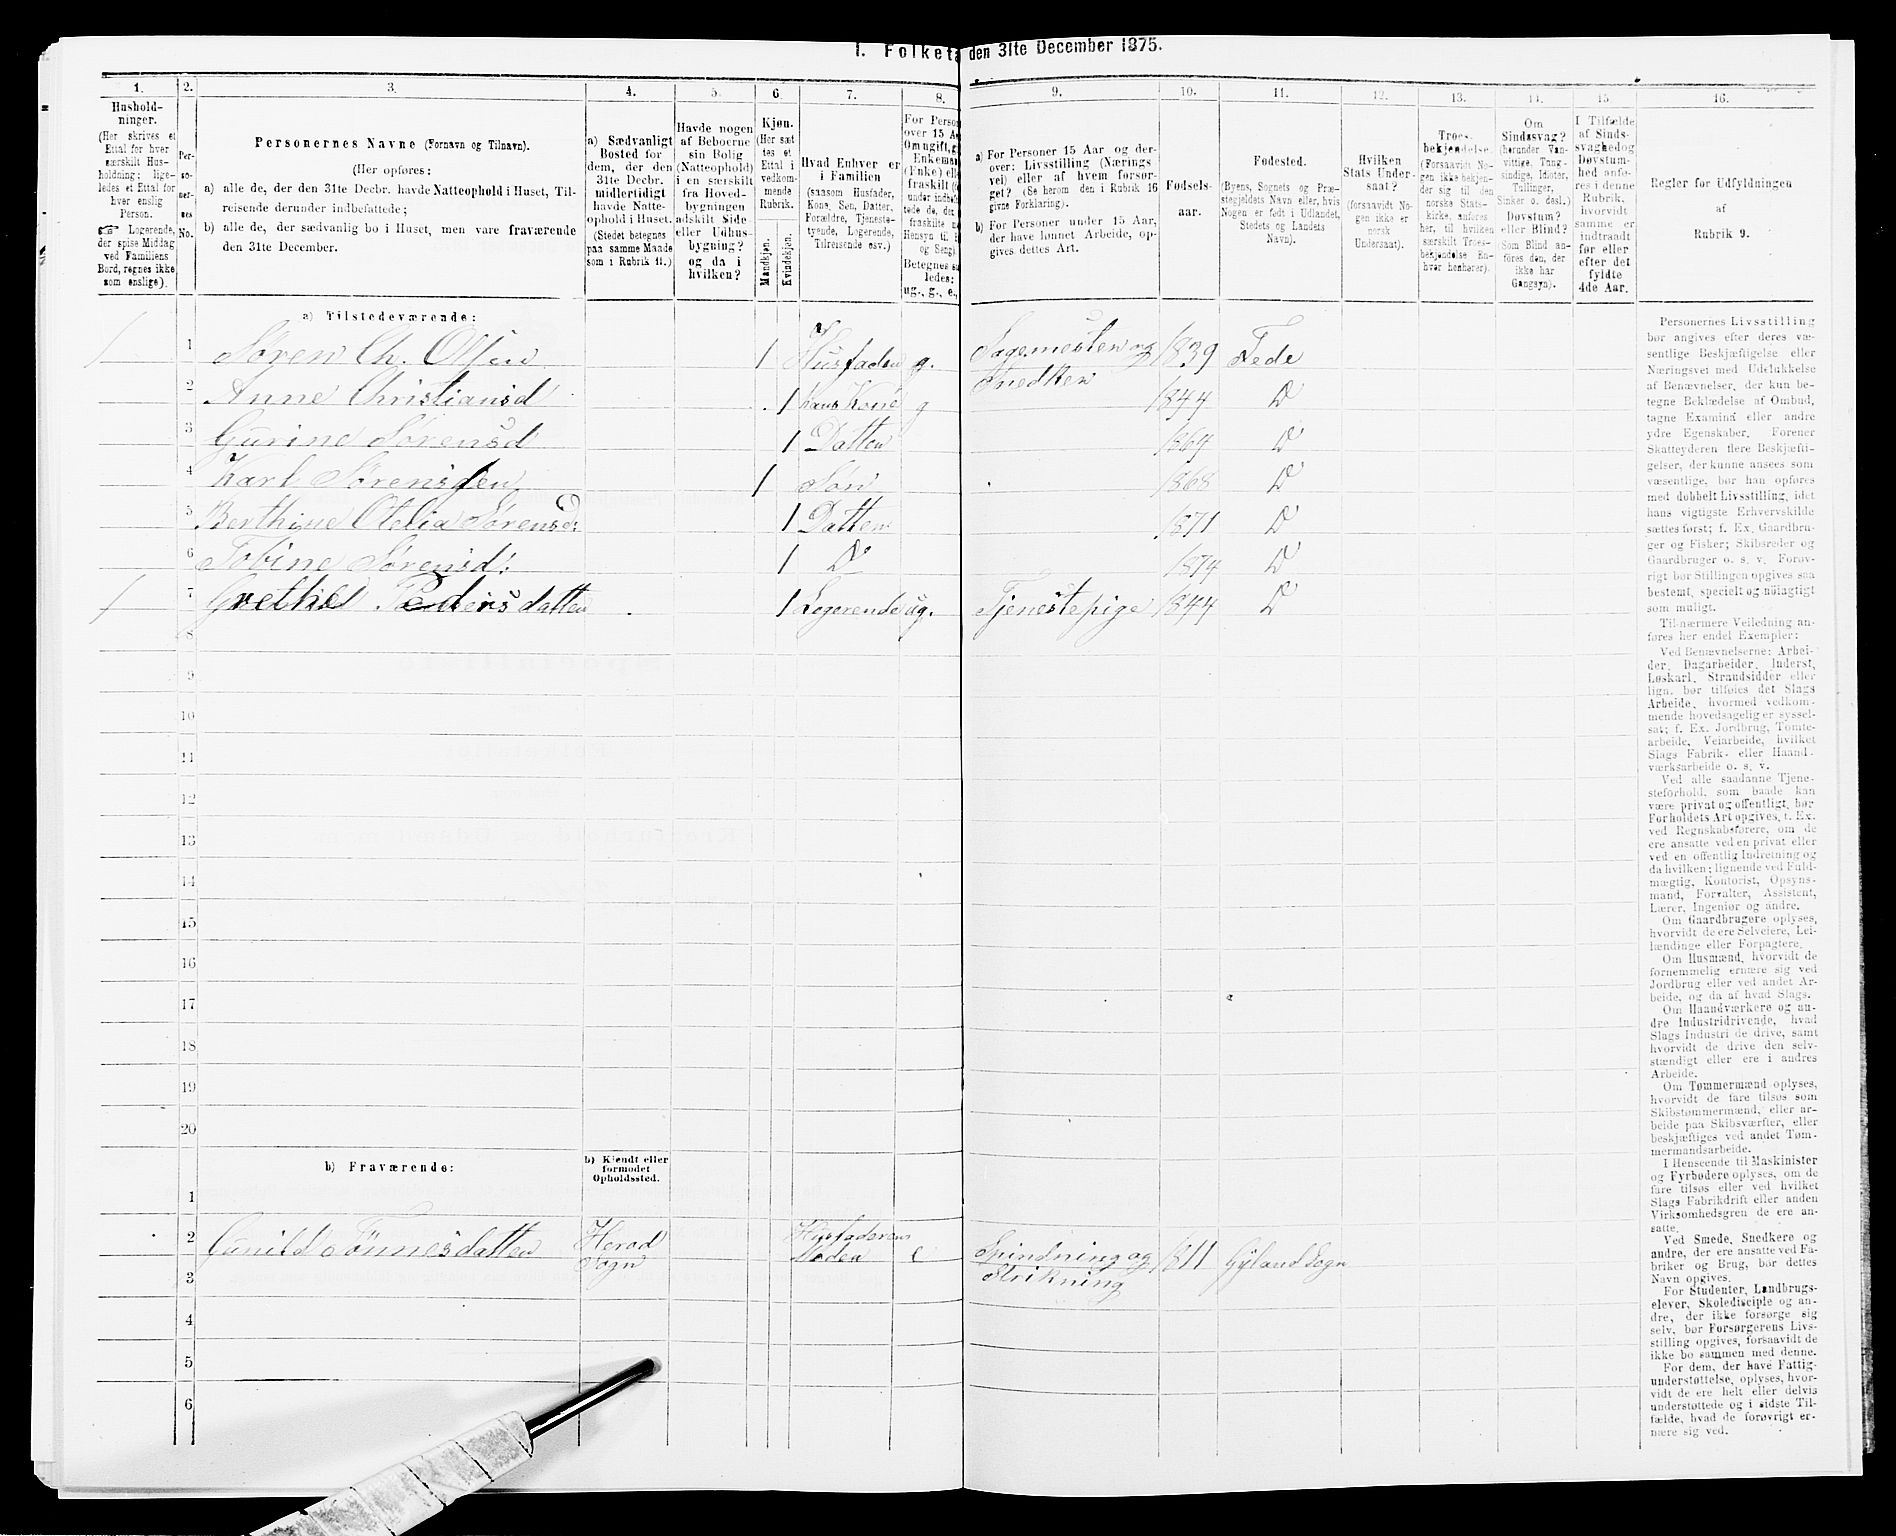 1. Folketæ den 31te December 1875.
1. 2. 3. 4. 5. 6. 7. 8. 9. 10. 11. 12. 13. 14. 15. 16.
Hushold-
ninger.
(Her skrives et
Ettal for hver
særskilt Hus-
holdning; lige-
ledes et Ettal for
hver enslig
Person.
☞ Logerende,
der spise Middag
ved Familiens
Bord, regnes ikke
som enslige).
Per-
so-
ner-
nes
No.
Personernes Navne (Fornavn og Tilnavn).
(Her opføres:
a) alle de, der den 31te Decbr. havde Natteophold i Huset, Til-
reisende derunder indbefattede;
b) alle de, der sædvanlig bo i Huset, men vare fraværende
den 31te December.
a) Sædvanligt
Bosted for
dem, der den
31te Decbr.
midlertidigt
havde Natte-
ophold i Huset.
(Stedet betegnes
paa samme Maade
som i Rubrik 11.)
Havde nogen
af Beboerne
sin Bolig
(Natteophold)
i en særskilt
fra Hoved-
bygningen
adskilt Side-
eller Udhus-
bygning?
og da i
hvilken?
Kjøn.
(Her sæt
tes et
Ettal i
vedkom-
mende
Rubrik.
Mandkjøn.
Kvindekjøn.
Hvad Enhver er
i Familien
(saasom Husfader,
Kone, Søn, Datter,
Forældre, Tjeneste-
tyende, Logerende,
Tilreisende osv.)
For Person
over 15 A
Om ugift, g
Enkeman
(Enke) elle
fraskilt (
under indbef
tede de, de
fraskilte
Hensyn til
og Seng)
Betegnes sa
ledes:
ug., g., e.,
a) For Personer 15 Aar og der-
over: Livsstilling (Nærings
vei) eller af hvem forsør-
get? (Se herom den i Rubrik 16
givne Forklaring).
b) For Personer under 15 Aar,
der have lønnet Arbeide, op-
gives dettes Art.
Fødsels-
aar.
Fødested.
(Byens, Sognets og Præ-
stegjeldets Navn eller, hvis
Nogen er født i Udlandet,
Stedets og Landets
Navn).
Hvilken
Stats Under-
saat?
(forsaavidt No-
gen ikke er
norsk
Undersaat).
Troes-
bekjendelse.
(Forsaavidt No-
gen ikke bekjen-
der sig til den
norske Stats-
kirke, anføres
her, til hvilken
særskilt Troes-
bekjendelse En-
hver henhører).
Om
Sindssvag?
(herunder Van-
vittige, Tung-
sindige, Idioter,
Tullinger,
Sinker o. desl.)
Døvstum?
eller Blind?
(Som Blind an-
føres den, der
ikke har
Gangsyn).
I Tilfælde
af Sinds-
svaghed og
Døvstum-
hed anfø-
res i denne
Rubrik,
hvorvidt
samme er
indtraadt
før eller
efter det
fyldte
4de Aar.
Regler for Udfyldningen
af
Rubrik 9.
a) Tilstedeværende:
1 1 Søren Ch. Olsen 1 Husfader g. Sagemester og 1839 Fede
Snedker
2 Anne Christiansd 1 hans Kone g 1844 Do
3 Gurine Sørensd 1 Datter 1864 Do
4 Karl Sørensen 1 Søn 1868 Do
5 Berthine Otelia Sørensd: 1 Datter 1871 Do
6 Tobine Sørensd: 1 Do 1874 Do
1 7 Grethe Pedersdatter 1 Logerende ug. Tjenestepige 1844 Do
8
9
10
11
12
13
14
15
16
17
18
19
20
b) Fraværende:
b) Kjendt eller
formodet
Opholdssted.
1
2 Gunild Tønnesdatter Herad Sogn Husfaderens Moder e Spindning og Strikning 1811 Gyland Sogn
3
4
5
6
Personernes Livsstilling
bør angives efter deres væ-
sentlige Beskjæftigelse eller
Næringsvei med Udelukkelse
af Benævnelser, der kun be-
tegne Beklædelse af Ombud,
tagne Examina eller andre
ydre Egenskaber. Forener
Skatteyderen flere Beskjæfti-
gelser, der kunne ansees som
væsentlige, bør han opføres
med dobbelt Livsstilling, idet
hans vigtigste Erhvervskilde
sættes først; f. Ex. Gaardbru-
ger og Fisker; Skibsreder og
Gaardbruger o. s. v. Forøv-
rigt bør Stillingen opgives saa
bestemt, specielt og nøiagtigt
som muligt.
Til nærmere Veiledning an-
føres her endel Exempler:
Ved Benævnelserne: Arbei-
der, Dagarbeider, Inderst,
Løskarl, Strandsidder eller
lign. bør tilføies det Slags
Arbeide, hvormed vedkom-
mende hovedsagelig er syssel-
sat; f. Ex. Jordbrug, Tomte-
arbeide, Veiarbeide, hvilket
Slags Fabrik- eller Haand-
værksarbeide o. s. v.
Ved alle saadanne Tjene-
steforhold, som baade kan
være privat og offentligt, bør
Forholdets Art opgives, t. Ex.
ved Regnskabsførere, om de
ere ansatte ved en privat eller
ved en offentlig Indretning og
da hvilken; lignende ved Fuld-
mægtig, Kontorist, Opsyns-
mand, Forvalter, Assistent,
Lærer, Ingeniør og andre.
Om Gaardbrugere oplyses,
hvorvidt de ere Selveiere, Lei-
lændinge eller Forpagtere.
Om Husmænd, hvorvidt de
fornemmelig ernære sig ved
Jordbrug eller ved andet Ar-
beide, og da af hvad Slags.
Om Haandværkere og an-
dre Industridrivende, hvad
Slags Industri de drive, samt
hvorvidt de drive den selv-
stændigt eller ere i andres
Arbeide.
Om Tømmermænd oplyses,
hvorvidt de fare tilsøs som
Skibstømmermænd, eller ar-
beide paa Skibsværfter, eller
beskjæftiges ved andet Tøm-
mermandsarbeide.
I Henseende til Maskinister
og Fyrbødere oplyses, om de
fare tilsøs eller ved hvilket
Slags Fabrikdrift eller anden
Virksomhedsgren de ere an-
satte.
Ved Smede, Snedkere og
andre, der ere ansatte ved Fa-
briker og Brug, bør dettes
Navn opgives.
For Studenter, Landbrugs-
elever, Skoledisciple og an-
dre, der ikke forsørge sig
selv, bør Forsørgerens Livs-
stilling opgives, forsaavidt de
ikke bo sammen med denne.
For dem, der have Fattig-
understøttelse, oplyses, hvor-
vidt de ere helt eller delvis
understøttede og i sidste Til-
fælde, hvad de forøvrigt er-
nære sig ved.